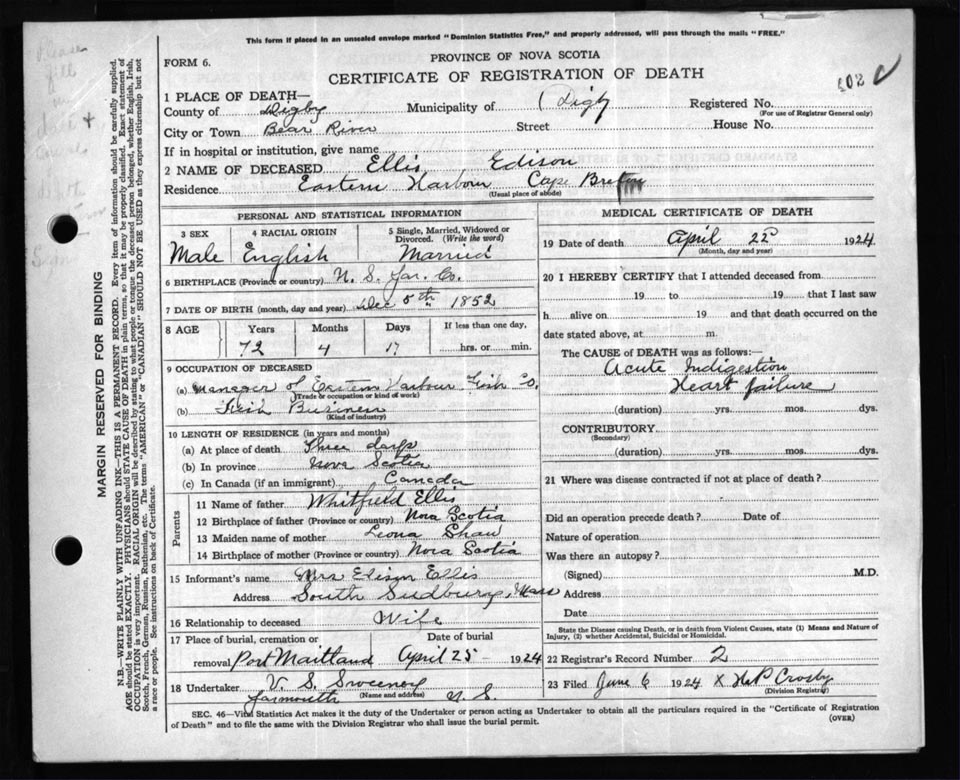 This form if placed in an unsealed envelope marked "Dominion Statistics Free," and properly addressed, will pass through the mails "FREE."
FORM 6.
PROVINCE OF NOVA SCOTIA
CERTIFICATE OF REGISTRATION OF DEATH
802
1 PLACE OF DEATH—
County of Digby Municipality of Digby Registered No.
(For use of Registrar General only)
City or Town Bear River Street House No.
If in hospital or institution, give name
2 NAME OF DECEASED Ellis Edison
Residence Eastern Harbour Cape Breton
(Usual place of abode)
PERSONAL AND STATISTICAL INFORMATION
3 SEX 4 RACIAL ORIGIN 5 Single, Married, Widowed or Divorced. (Write the word)
Male English Married
6 BIRTHPLACE (Province or country) N. S. Yar. Co.
7 DATE OF BIRTH (month, day and year) Dec 5th 1852
8 AGE Years Months Days If less than one day,
72 4 17 hrs. or min.
9 OCCUPATION OF DECEASED
(a) Manager of Eastern Harbour Fish Co.
(Trade or occupation or kind of work)
(b) Fish Business
(Kind of industry)
10 LENGTH OF RESIDENCE (in years and months)
(a) At place of death Three days
(b) In province Nova Scotia
(c) In Canada (if an immigrant) Canada
Parents
11 Name of father Whitfield Ellis
12 Birthplace of father (Province or country) Nova Scotia
13 Maiden name of mother Leona Shaw
14 Birthplace of mother (Province or country) Nova Scotia
15 Informant's name Mrs Edison Ellis
Address South Sudbury, Mass
16 Relationship to deceased Wife
17 Place of burial, cremation or Date of burial
removal Port Maitland April 25 1924
18 Undertaker V. S. Sweeney
(Name and address)
Yarmouth N. S.
MEDICAL CERTIFICATE OF DEATH
19 Date of death April 22 1924
(Month, day and year)
20 I HEREBY CERTIFY that I attended deceased from
19 to 19 that I last saw
h alive on 19 and that death occurred on the
date stated above, at m.
The CAUSE OF DEATH was as follows:
Acute Indigestion
Heart failure
(duration) yrs. mos. dys.
CONTRIBUTORY
(Secondary)
(duration) yrs. mos. dys.
21 Where was disease contracted if not at place of death?
Did an operation precede death? Date of
Nature of operation
Was there an autopsy?
(Signed) M.D.
Address
Date
State the Disease causing Death, or in death from Violent Causes, state (1) Means and Nature of
Injury, (2) whether Accidental, Suicidal or Homicidal.
22 Registrar's Record Number 2
23 Filed June 6 1924 X H P Crosby
(Division Registrar)
SEC. 46—Vital Statistics Act makes it the duty of the Undertaker or person acting as Undertaker to obtain all the particulars required in the "Certificate of Registration
of Death" and to file the same with the Division Registrar who shall issue the burial permit.
(OVER)
MARGIN RESERVED FOR BINDING
N.B.—WRITE PLAINLY WITH UNFADING INK—THIS IS A PERMANENT RECORD. Every item of information should be carefully supplied.
AGE should be stated EXACTLY. PHYSICIANS should STATE CAUSE OF DEATH in plain terms, so that it may be properly classified. Exact statement of
OCCUPATION is very important. RACIAL ORIGIN will be described by stating to what people or tongue the deceased person belonged, whether English, Irish,
Scotch, French, German, Russian, Ruthenian, etc. The terms "AMERICAN" or "CANADIAN" SHOULD NOT BE USED as they express citizenship but not
a race or people. See instructions on back of Certificate.
Please
fill